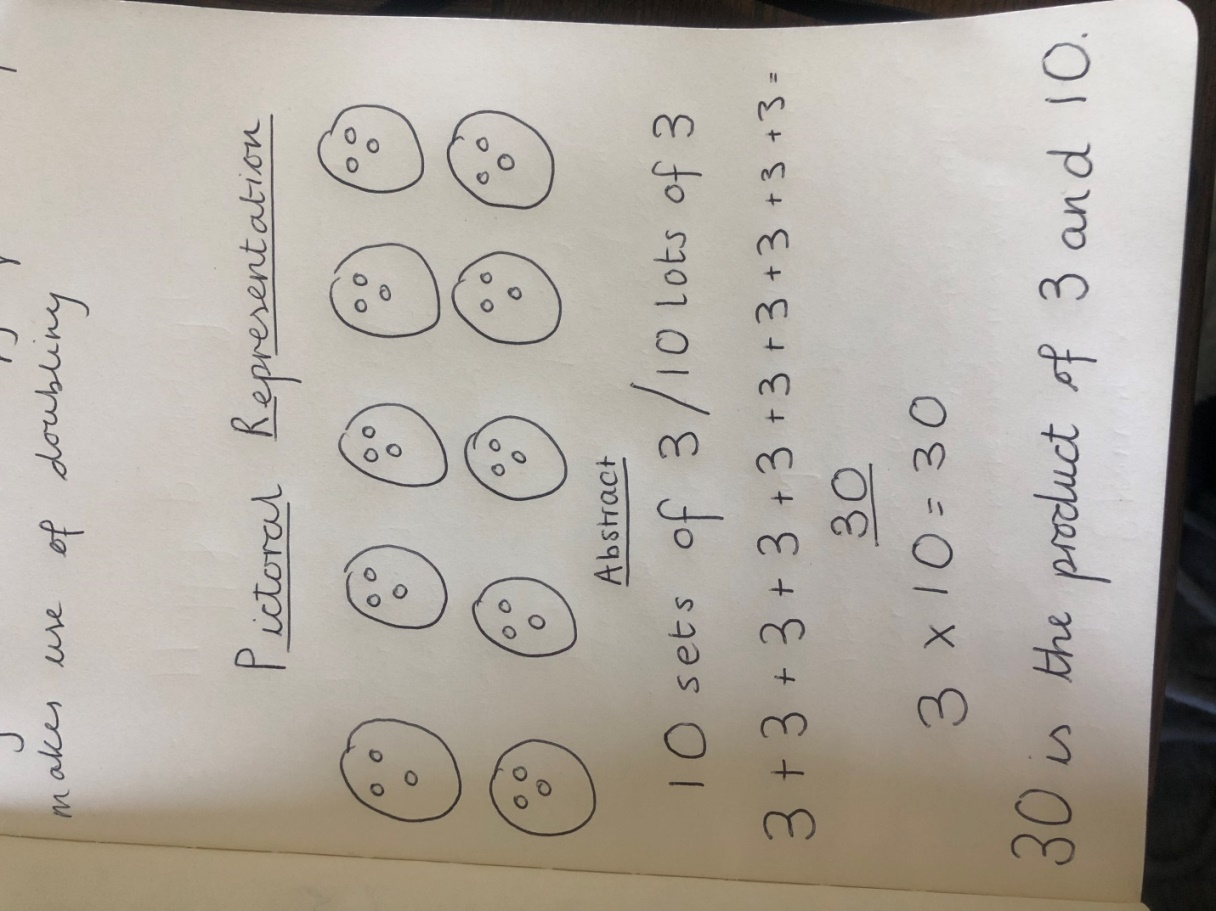 makes use of doubling
Pictoral Representation
Abstract
10 sets of 3/10 lots of 3
3 + 3 + 3 + 3 + 3 + 3 + 3 + 3 + 3 + 3 =
30
3 x 10 = 30
30 is the product of 3 and 10.